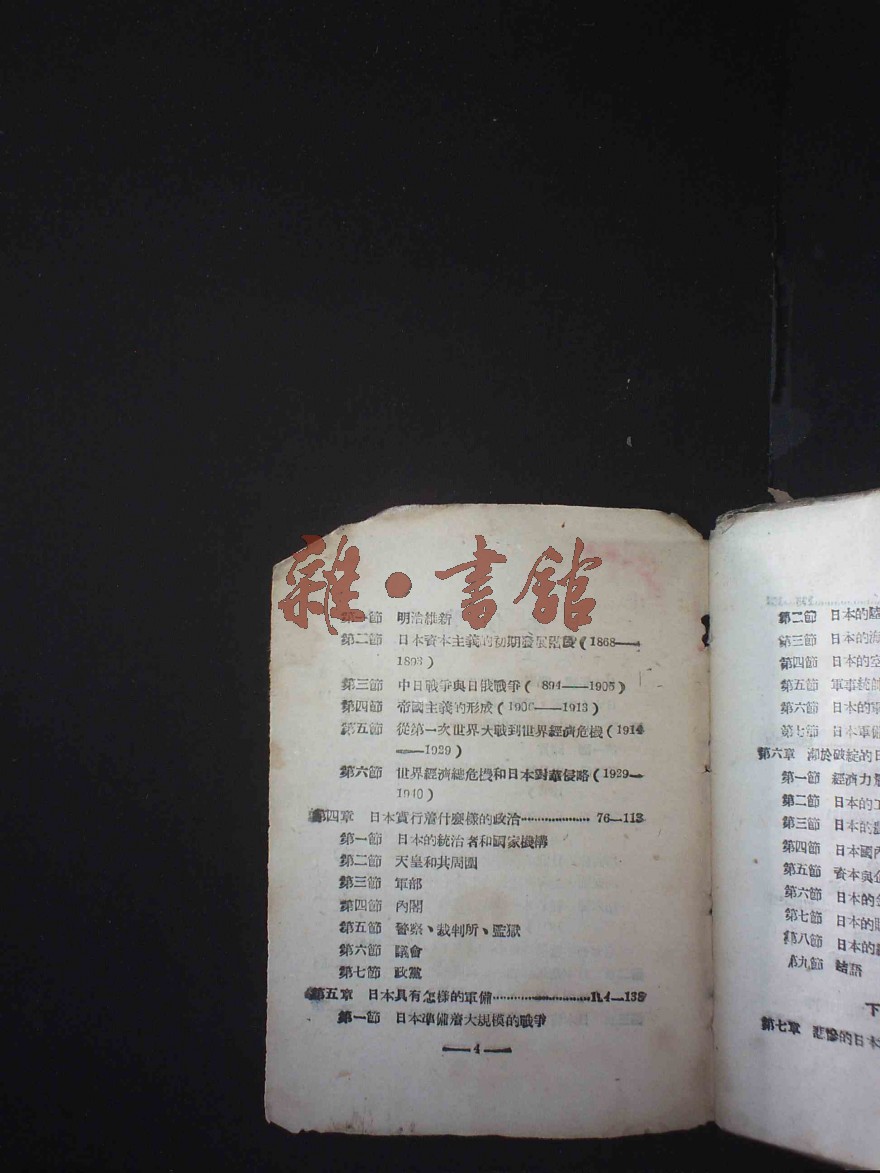 雜·書館
第一節 明治維新
第二節 日本資本主義的初期發展階段(1868——
1893)
第三節 中日戰爭與日俄戰爭( 894——1905)
第四節 帝國主義的形成(1906——1913)
第五節 從第一次世界大戰到世界經濟危機(1914
——1929)
第六節 世界經濟總危機和日本對華侵略(1929—
1940)
第四章 日本實行着什麼樣的政治………………… 76—113
第一節 日本的統治者和國家機構
第二節 天皇和其周圍
第三節 軍部
第四節 內閣
第五節 警察、裁判所、監獄
第六節 議會
第七節 政黨
第五章 日本具有怎樣的軍備………………………114—138
第一節 日本準備着大規模的戰爭
——4——
第二節 日本的陸
第三節 日本的海
第四節 日本的空
第五節 軍事統帥
第六節 日本的軍
第七節 日本軍備
第六章 瀕於破綻的日
第一節 經濟力
第二節 日本的工
第三節 日本的
第四節 日本國內
第五節 資本與企
第六節 日本的
第七節 日本的
第八節 日本的
第九節 結語
下
第七章 悲慘的日本